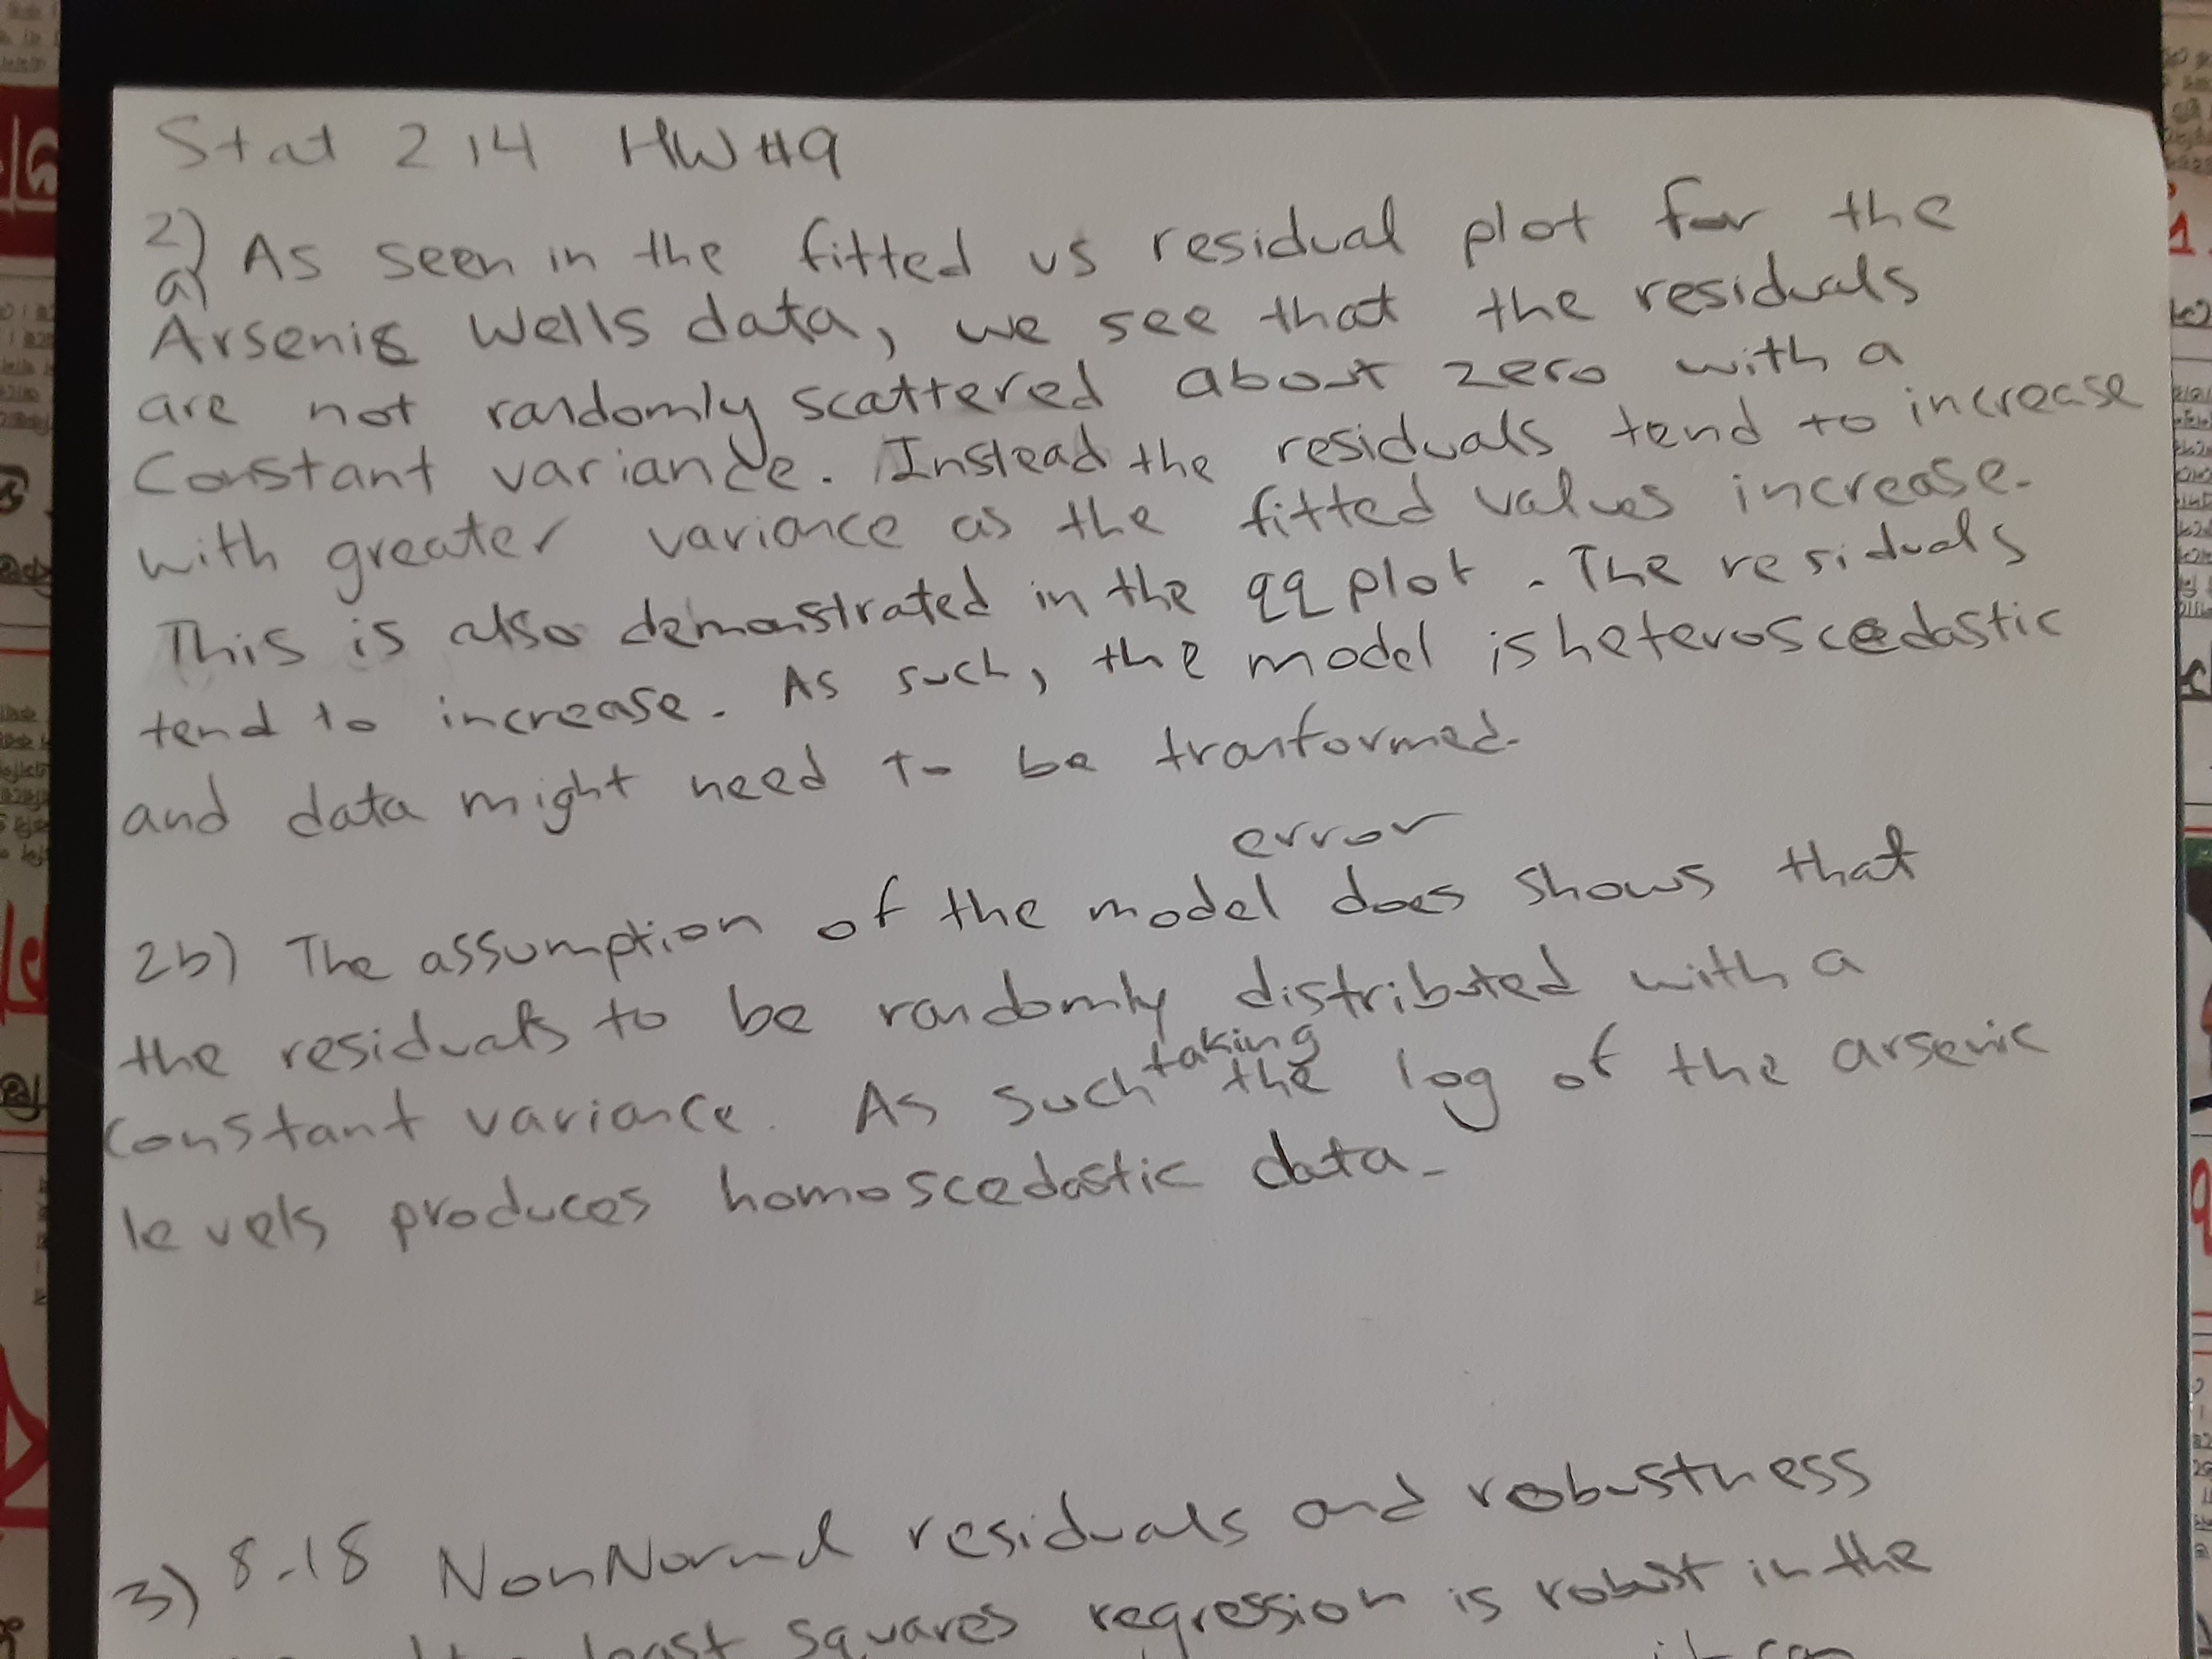 Stat 214 HW #9
2)
a) As seen in the fitted vs residual plot for the
Arsenic Wells data, we see that the residuals
are not randomly scattered about zero with a
Constant variance. Instead the residuals tend to increase
with greater variance as the fitted values increase.
This is also demonstrated in the qq plot. The residuals
tend to increase. As such, the model is heteroscedastic
and data might need to be tranformed.
error
2b) The assumption of the model does shows that
the residuals to be randomly distributed with a
taking
constant variance. As such the log of the arsenic
levels produces homoscedastic data.
3) 8.18 NonNormal residuals and robustness
least squares regression is robust in the
it can